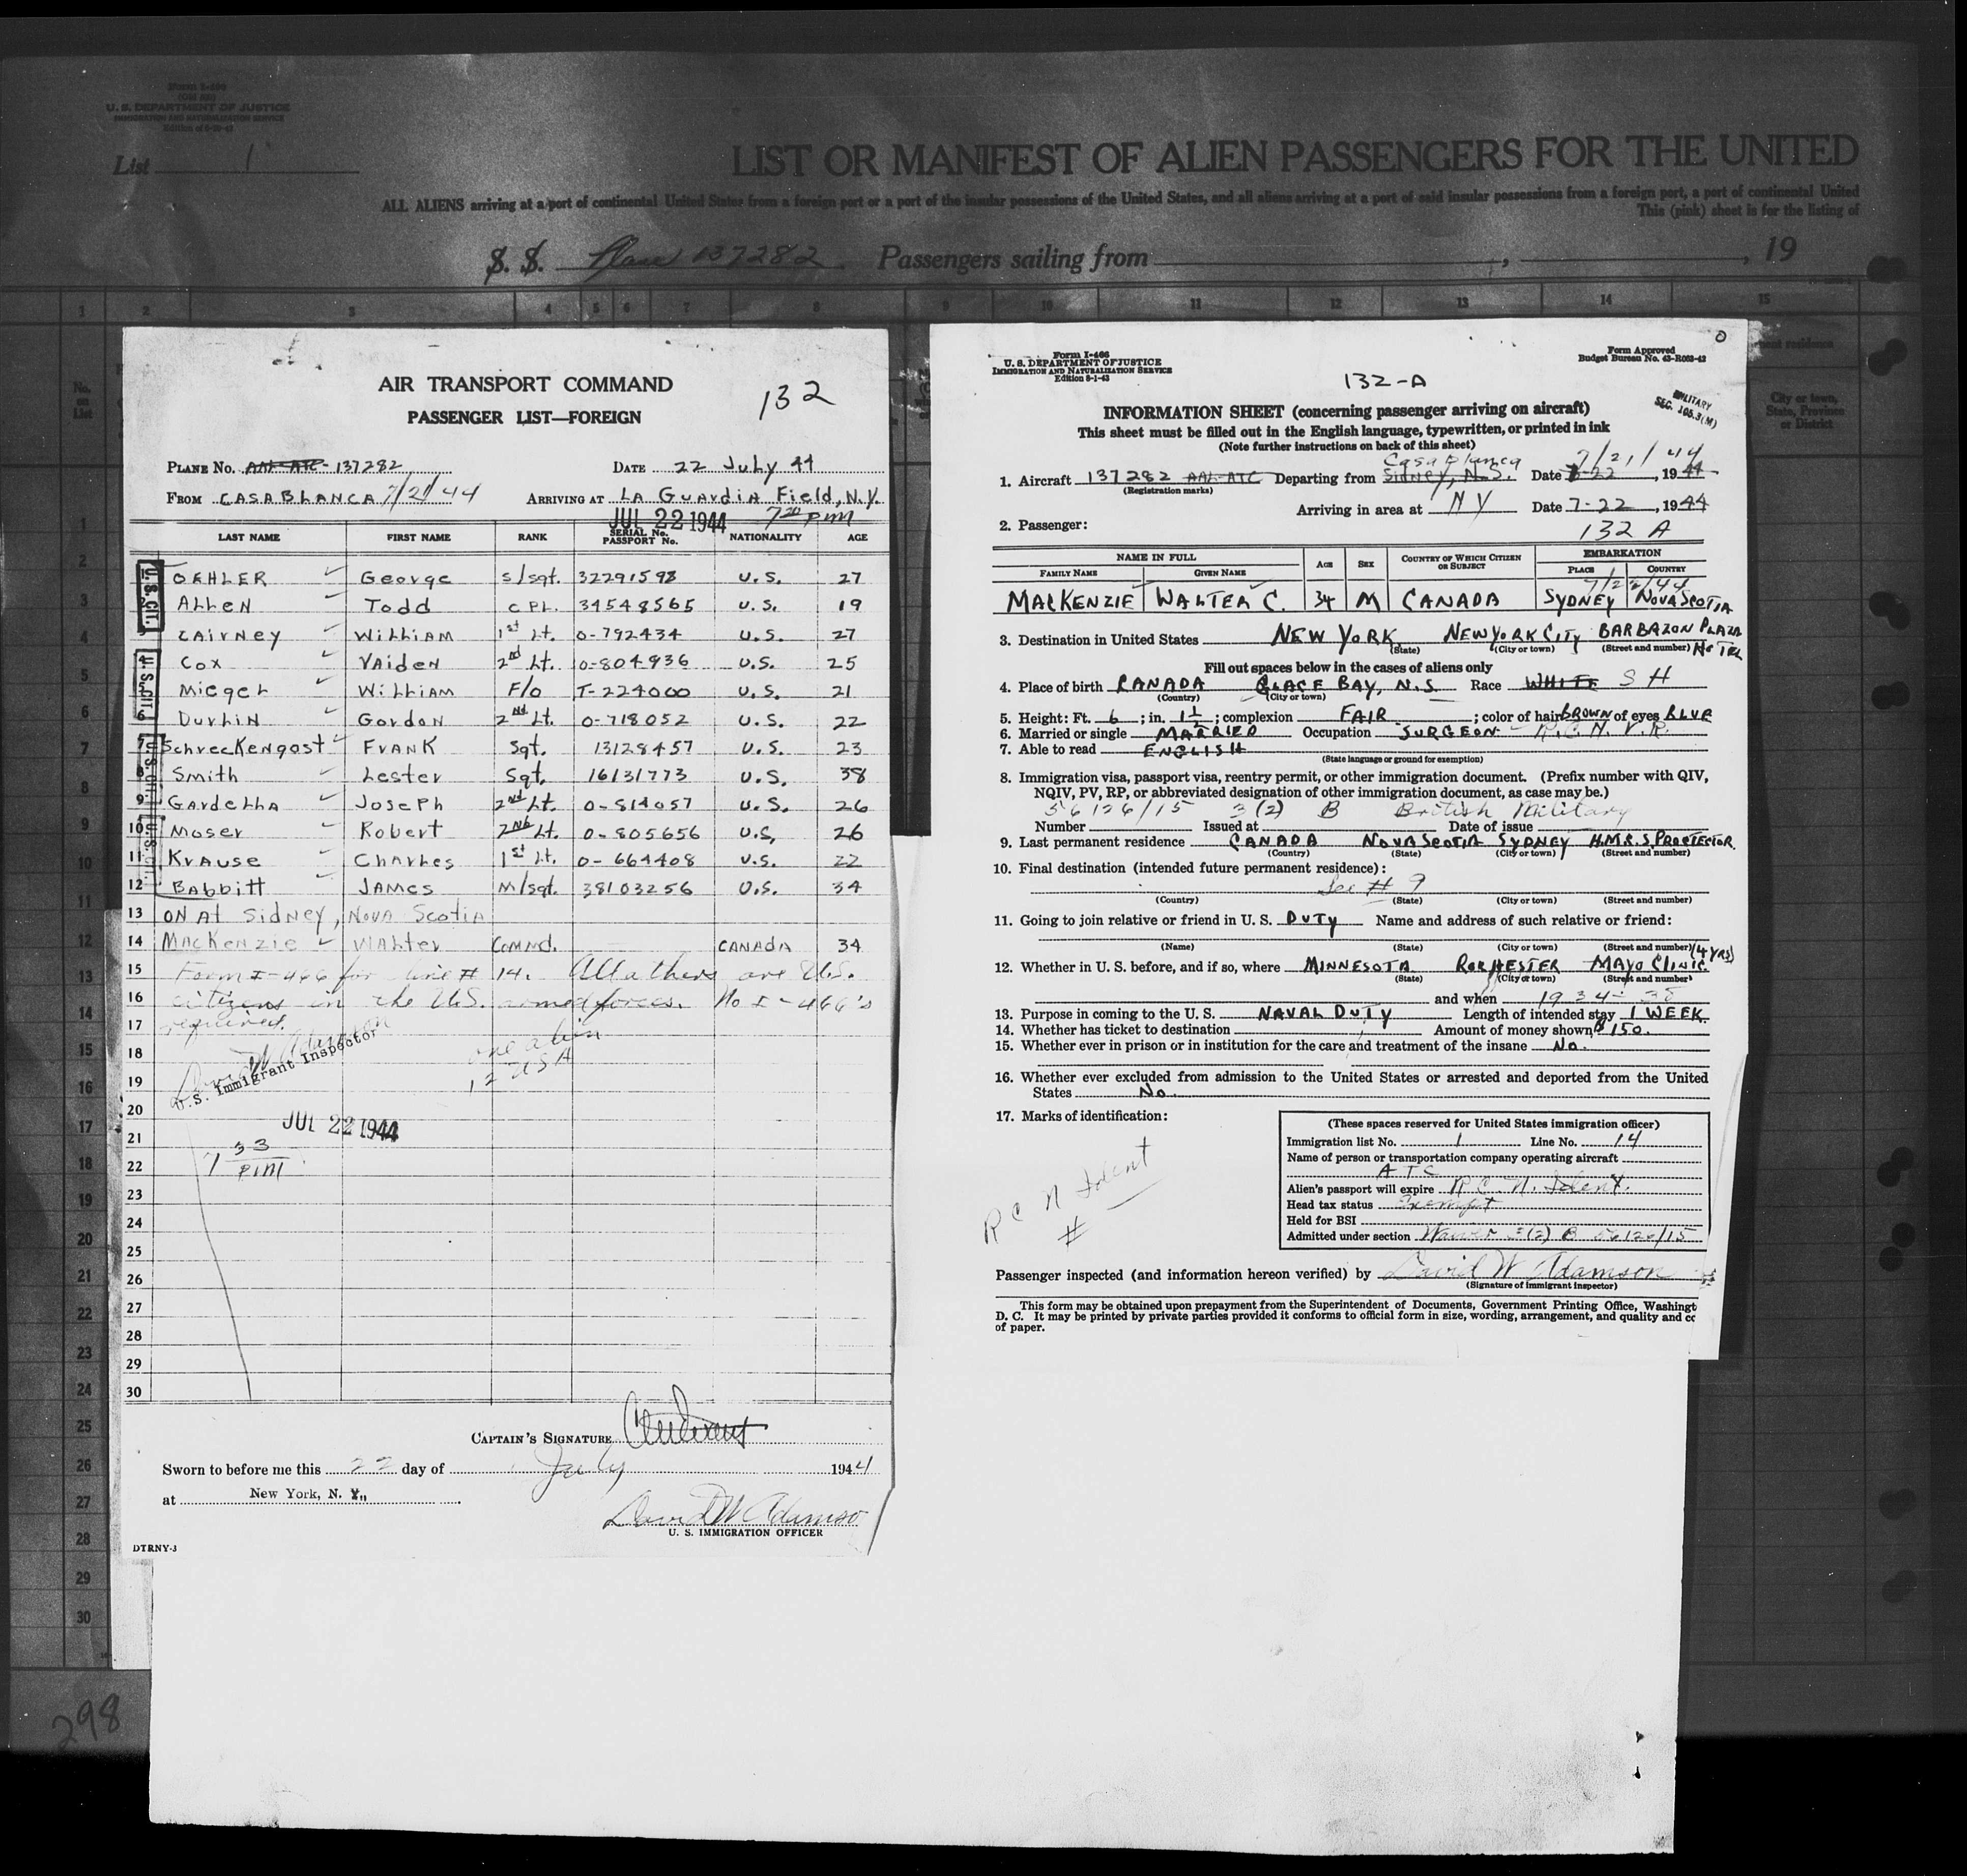 Form I-466
U. S. DEPARTMENT OF JUSTICE
IMMIGRATION AND NATURALIZATION SERVICE
List 1
LIST OR MANIFEST OF ALIEN PASSENGERS FOR THE UNITED
ALL ALIENS arriving at a port of continental United States from a foreign port or a port of the insular possessions of the United States, and all aliens arriving at a port of said insular possessions from a foreign port, a port of continental United
This (pink) sheet is for the listing of
S. S. Plane 137282 Passengers sailing from , , 19
1 2 3 4 5 6 7 8 9 10 11 12 13 14 15
No. on List
City or town, State, Province or District
AIR TRANSPORT COMMAND
132
PASSENGER LIST—FOREIGN
PLANE No. AAL-ATC-137282 DATE 22 July 44
FROM CASABLANCA 7/21/44 ARRIVING AT LA GUARDIA Field, N.Y.
JUL 22 1944 7 20 PM
LAST NAME FIRST NAME RANK SERIAL No. PASSPORT No. NATIONALITY AGE
U.S. CIT.
OEHLER George S/sgt. 32291598 U.S. 27
ALLEN Todd CPL. 34548565 U.S. 19
CAIRNEY WILLIAM 1st Lt. O-792434 U.S. 27
COX VAIDEN 2nd Lt. O-804936 U.S. 25
MIEGEL WILLIAM F/O T-224000 U.S. 21
6 DURLIN GORDON 2nd Lt. O-718052 U.S. 22
7 SchrecKengost FRANK Sgt. 13128457 U.S. 23
8 Smith Lester Sgt. 16131773 U.S. 38
9 GARDELLA JOSEPH 2nd Lt. O-814057 U.S. 26
10 MOSER ROBERT 2nd Lt. O-805656 U.S. 26
11 KRAUSE CHARLES 1st Lt. O-664408 U.S. 22
12 BABBITT JAMES M/sgt. 38103256 U.S. 34
13 ON At SIDNEY, NOVA SCOTIA
14 MACKENZIE WALTER COMMD. CANADA 34
15 Form I-466 for line # 14. All others are U.S.
16 citizens in the U.S. armed forces. No I-466's
17 required.
David W Adamson
U.S. Immigrant Inspector
18 one alien
19 12 USA
20
JUL 22 1944
21
7 33 PM
22
23
24
25
26
27
28
29
30
CAPTAIN'S SIGNATURE
Sworn to before me this 22 day of July 1944
at New York, N. Y.,
David W Adamso
U. S. IMMIGRATION OFFICER
DTRNY-3
298
Form I-466
U. S. DEPARTMENT OF JUSTICE
IMMIGRATION AND NATURALIZATION SERVICE
Edition 8-1-43
Form Approved
Budget Bureau No. 43-R063-42
132-A
MILITARY
SEC. 105.3(M)
INFORMATION SHEET (concerning passenger arriving on aircraft)
This sheet must be filled out in the English language, typewritten, or printed in ink
(Note further instructions on back of this sheet)
Casablanca 7/21/44
1. Aircraft 137282 AAL-ATC Departing from Sidney, N.S. Date 7-22, 1944
(Registration marks)
Arriving in area at NY Date 7-22, 1944
2. Passenger: 132 A
NAME IN FULL AGE SEX COUNTRY OF WHICH CITIZEN OR SUBJECT EMBARKATION
FAMILY NAME GIVEN NAME PLACE COUNTRY
7/22/44
MACKENZIE WALTER C. 34 M CANADA SYDNEY NOVA SCOTIA
3. Destination in United States NEW YORK NEW YORK CITY BARBAZON PLAZA HOTEL
(State) (City or town) (Street and number)
Fill out spaces below in the cases of aliens only
4. Place of birth CANADA GLACE BAY, N.S. Race WHITE SH
(Country) (City or town)
5. Height: Ft. 6; in. 1½; complexion FAIR; color of hair BROWN of eyes BLUE
6. Married or single MARRIED Occupation SURGEON - R.C.N.V.R.
7. Able to read ENGLISH
(State language or ground for exemption)
8. Immigration visa, passport visa, reentry permit, or other immigration document. (Prefix number with QIV,
NQIV, PV, RP, or abbreviated designation of other immigration document, as case may be.)
56126/15 3(2) B British Military
Number Issued at Date of issue
9. Last permanent residence CANADA NOVA SCOTIA SYDNEY H.M.C.S. PROTECTOR
(Country) (State) (City or town) (Street and number)
10. Final destination (intended future permanent residence):
See # 9
(Country) (State) (City or town) (Street and number)
11. Going to join relative or friend in U. S. DUTY Name and address of such relative or friend:
(Name) (State) (City or town) (Street and number)
12. Whether in U. S. before, and if so, where MINNESOTA ROCHESTER MAYO CLINIC (4 YRS)
(State) (City or town) (Street and number)
and when 1934-38
13. Purpose in coming to the U. S. NAVAL DUTY Length of intended stay 1 WEEK
14. Whether has ticket to destination Amount of money shown $150.
15. Whether ever in prison or in institution for the care and treatment of the insane No.
16. Whether ever excluded from admission to the United States or arrested and deported from the United
States No
17. Marks of identification:
R C N Ident
#
(These spaces reserved for United States immigration officer)
Immigration list No. 1 Line No. 14
Name of person or transportation company operating aircraft
ATC
Alien's passport will expire R.C.N. Ident.
Head tax status Exempt
Held for BSI
Admitted under section Waiver 3(2) B 56126/15
Passenger inspected (and information hereon verified) by David W Adamson
(Signature of immigrant inspector)
This form may be obtained upon prepayment from the Superintendent of Documents, Government Printing Office, Washingt
D. C. It may be printed by private parties provided it conforms to official form in size, wording, arrangement, and quality and cc
of paper.